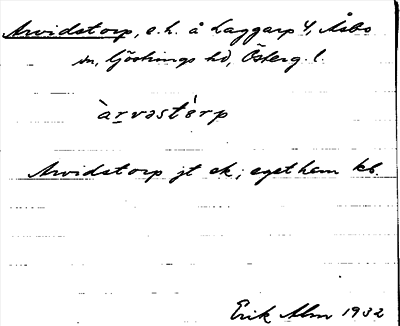 Arvidstorp, e.h. å Laggarp 4, Åsbo
sn, Göstrings hd, Österg. l.
àrvəstérp
Arvidstorp jt ek; egethem kb.
Erik Alm 1932